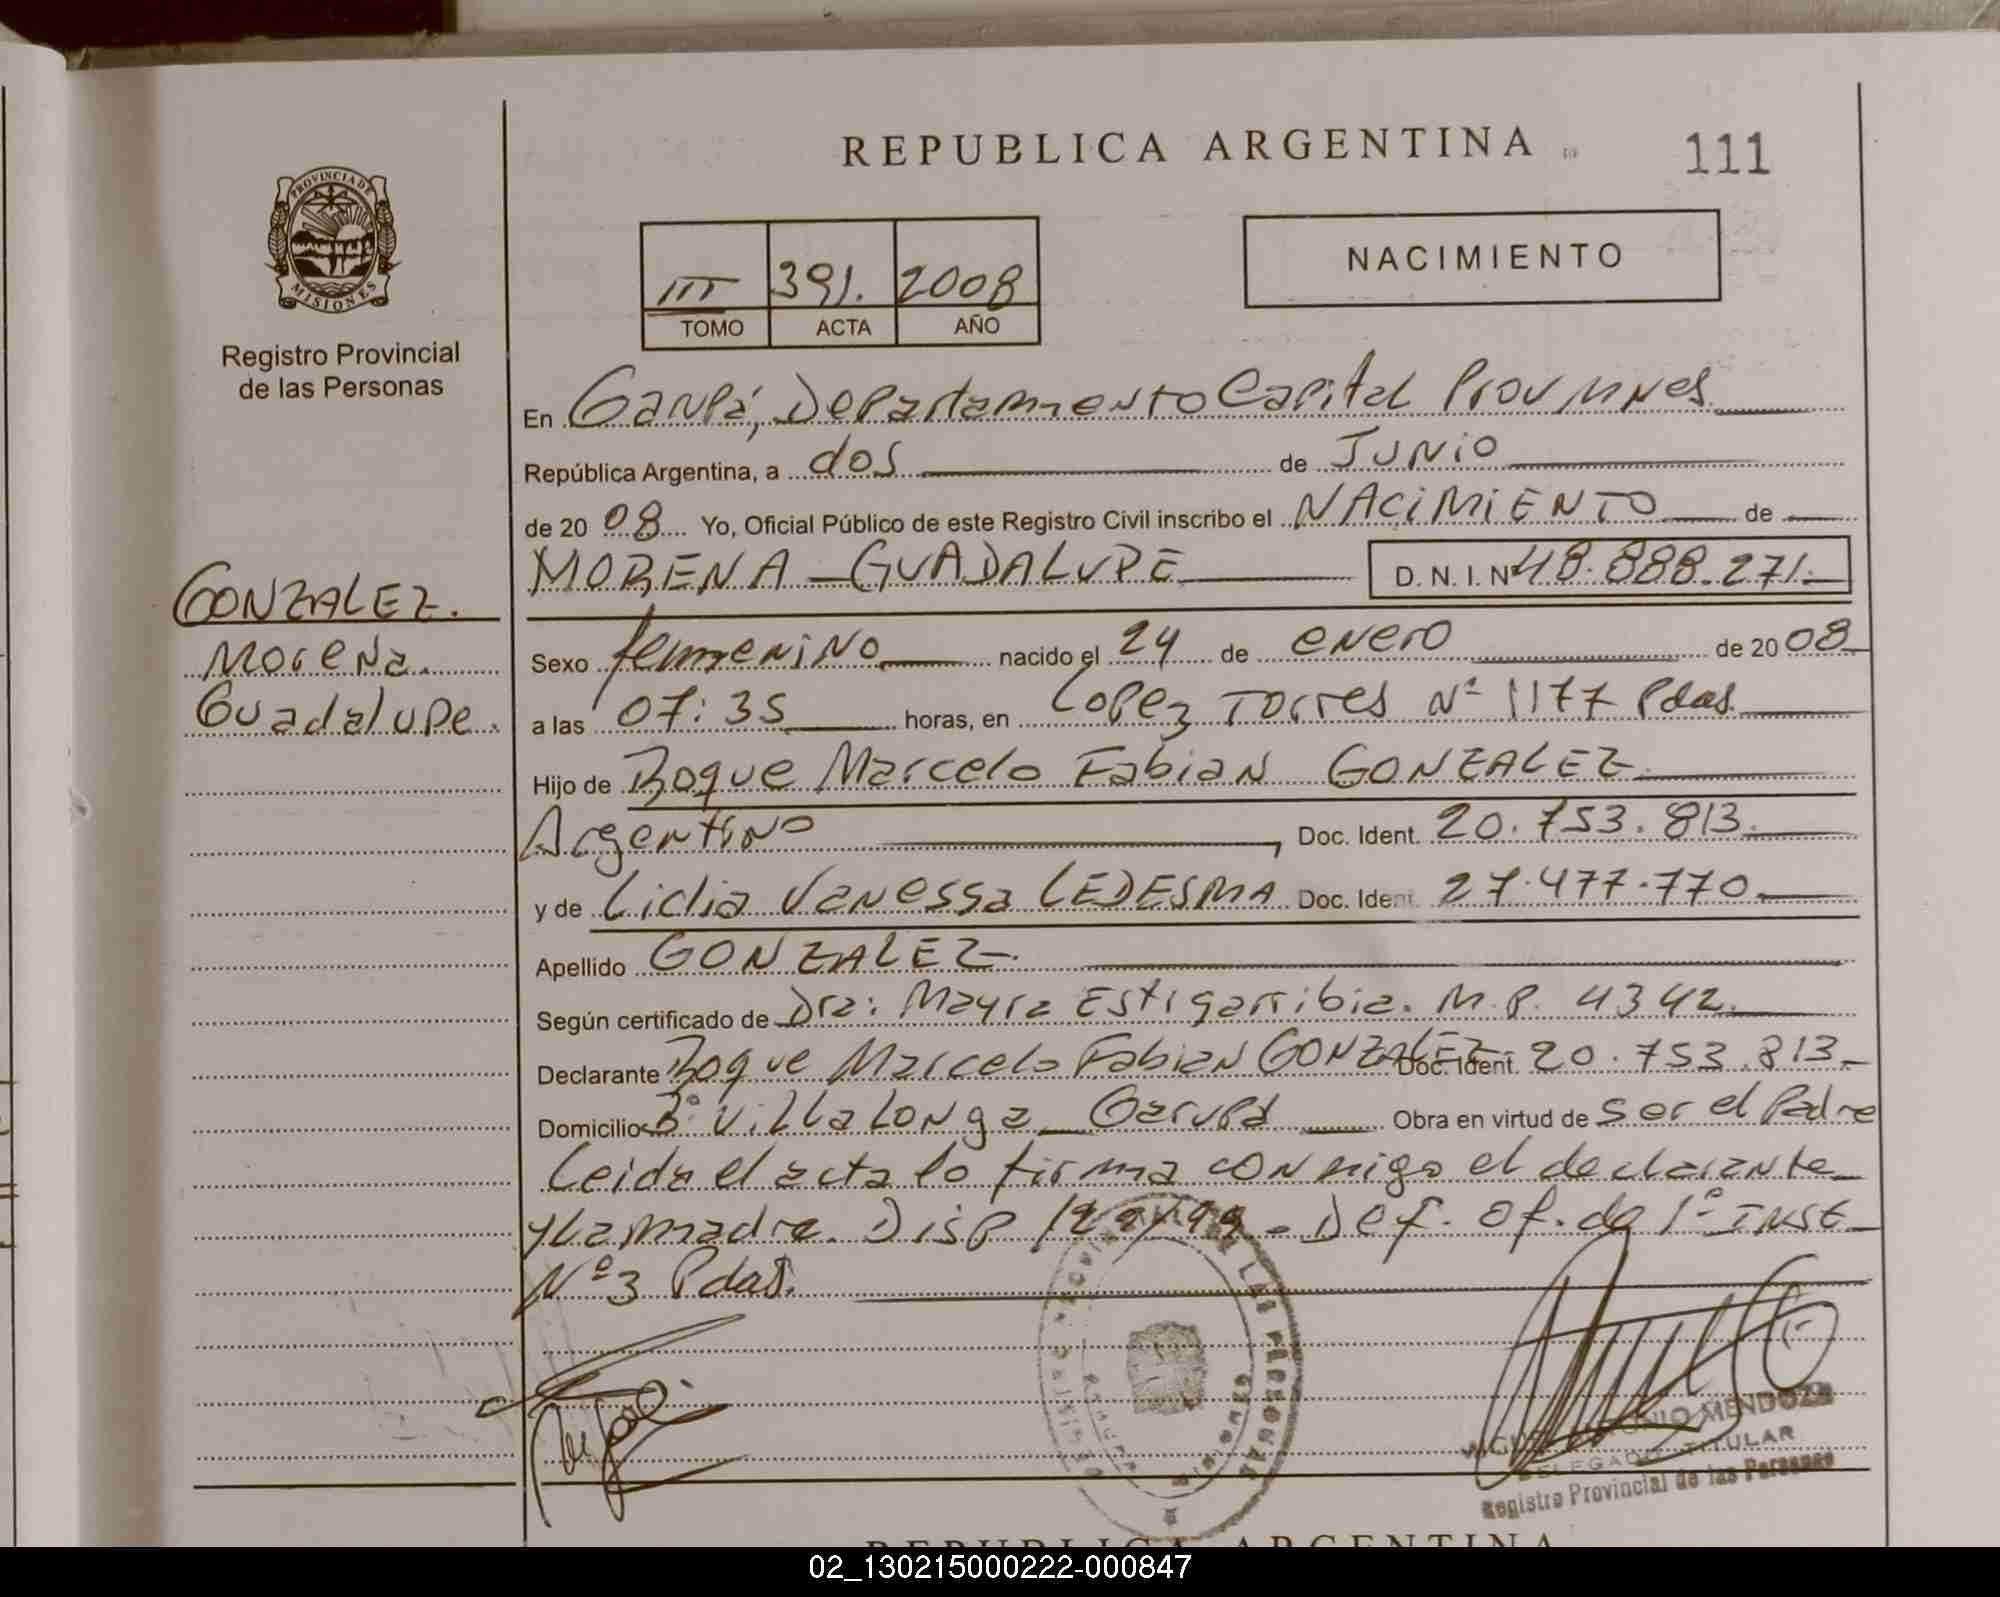 REPUBLICA ARGENTINA
111
PROVINCIA DE
MISIONES
Registro Provincial
de las Personas
III 391. 2008
TOMO ACTA AÑO
NACIMIENTO
En Garupá, Departamento Capital Prov Mnes
República Argentina, a dos de Junio
de 20 08 Yo, Oficial Público de este Registro Civil inscribo el NACIMIENTO de
MORENA GUADALUPE D. N. I. Nº 48.888.271.
GONZALEZ.
Morena
Guadalupe.
Sexo femenino nacido el 24 de enero de 20 08
a las 07:35 horas, en Lopez Torres Nº 1177 Pdas.
Hijo de Roque Marcelo Fabian GONZALEZ
Argentino, Doc. Ident. 20.753.813
y de Lidia Vanessa LEDESMA Doc. Ident. 27.477.770
Apellido GONZALEZ
Según certificado de Dra: Mayra Estigarribia. M.P. 4342.
Declarante Roque Marcelo Fabian GONZALEZ Doc. Ident. 20.753.813
Domicilio Bº Villa Longa Garupá Obra en virtud de ser el Padre
Leida el acta lo firma conmigo el declarante
y la madre. Disp 122/99 - Def. Of. de 1º Inst
Nº 3 Pdas.
ANTONIO MENDOZA
DELEGADO TITULAR
Registro Provincial de las Personas
REPUBLICA ARGENTINA
02_130215000222-000847